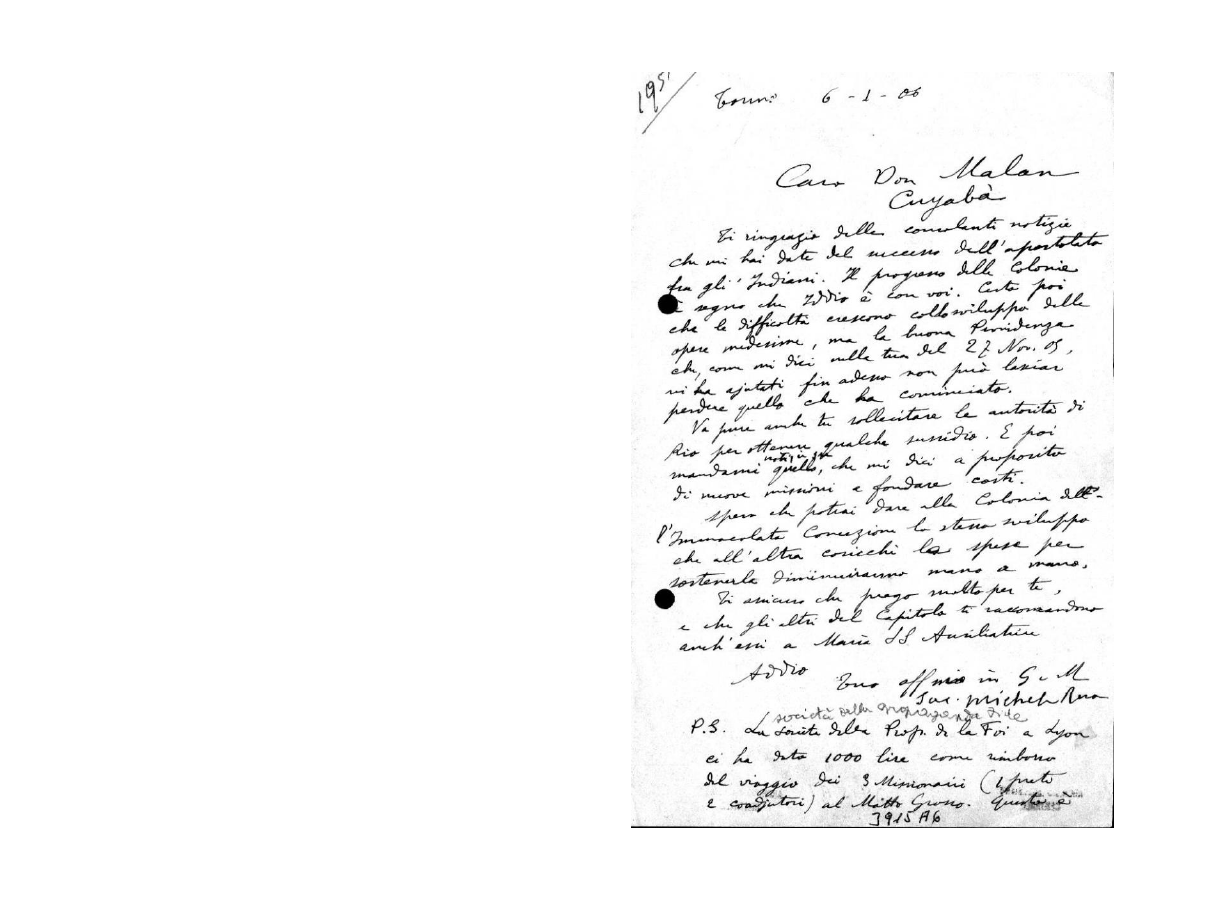 195
Torino 6 - 1 - 06
Caro Don Malan
Cuyabà
Ti ringrazio delle consolanti notizie
che mi hai date del successo dell'apostolato
fra gli Indiani. Il progresso delle Colonie
è segno che Iddio è con voi. Certo poi
che le difficoltà crescono collo sviluppo delle
opere medesime, ma la buona Provvidenza
che, come mi dici nella tua del 27 Nov. 05,
vi ha ajutati fin adesso non può lasciar
perdere quello che ha cominciato.
Va pure anche tu sollecitare le autorità di
Rio per ottenere qualche sussidio. E poi
notizie su
mandami quello, che mi dici a proposito
di nuove missioni a fondare costì.
Spero che potrai dare alla Colonia dell'
l'Immacolata Concezione lo stesso sviluppo
che all'altra cosicchè le spese per
sostenerla diminuiranno mano a mano.
Ti assicuro che prego molto per te,
e che gli altri del Capitolo ti raccomandono
anch'essi a Maria SS Ausiliatrice
Addio Tuo affmo in G e M
Sac. Michele Rua
società della propaganda Fide
P.S. La Société della Prop. de la Foi a Lyon
ci ha dato 1000 lire come rimborso
del viaggio dei 3 Missionarii (1 prete
2 coadjutori) al Matto Grosso. Questo è
3915 A6